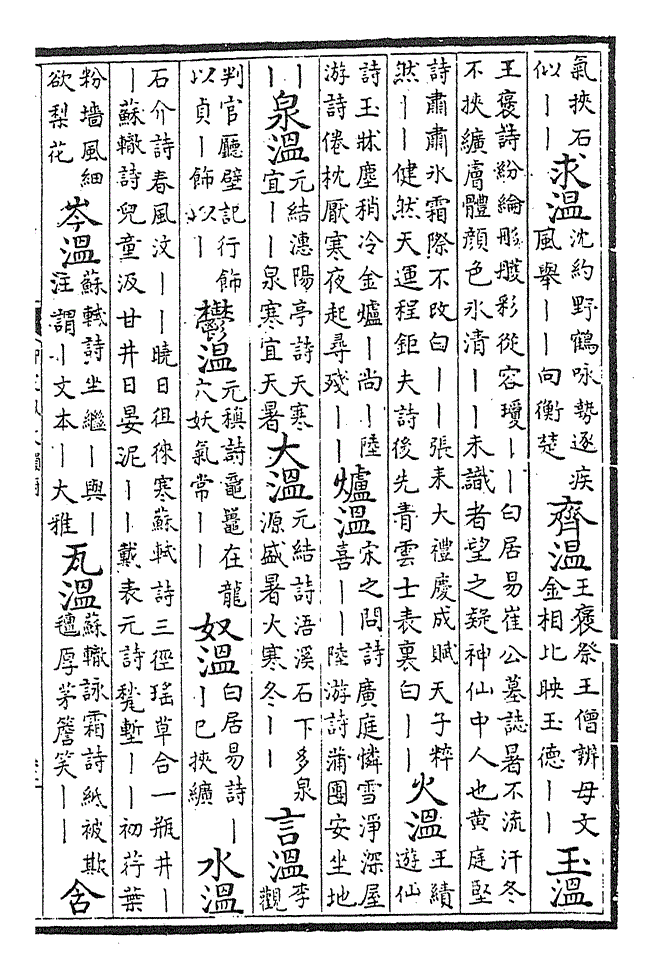 氣挾石
似〡〡
求溫
沈約野鶴咏勢逐疾
風舉〡〡向衡楚
齊溫
王褒祭王僧辯母文
金相比映玉德〡〡
玉溫
王褒詩紛綸彤雘彩從容瓊〡〡白居易崔公墓誌暑不流汗冬
不挾纊膚體顔色氷清〡〡未識者望之疑神仙中人也黄庭堅
詩肅肅氷霜際不改白〡〡張耒大禮慶成賦天子粹
然〡〡健然天運程鉅夫詩後先青雲士表裏白〡〡
火溫
王績
遊仙
詩玉牀塵稍冷金爐〡尚〡陸
游詩倦枕厭寒夜起尋殘〡〡
爐溫
宋之問詩廣庭憐雪淨深屋
喜〡〡陸游詩蒲團安坐地
〡
〡
泉溫
元結漶陽亭詩天寒
宜〡〡泉寒宜天暑
大溫
元結詩浯溪石下多泉
源盛暑大寒冬〡〡
言溫
李
觀
判官廳壁記行飾
以貞〡飾以〡
鬱溫
元稹詩黿鼉在龍
穴妖氣常〡〡
奴溫
白居易詩〡
〡已挾纊
水溫
石介詩春風汶〡〡曉日徂徠寒蘇軾詩三徑瑤草合一瓶井〡
〡蘇轍詩兒童汲甘井日晏泥〡〡戴表元詩甃塹〡〡初荇葉
粉墻風細
欲梨花
岑溫
蘇軾詩坐繼〡與〡
注謂〡文本〡大雅
瓦溫
蘇轍詠霜詩紙被欺
氊厚茅簷笑〡〡
含